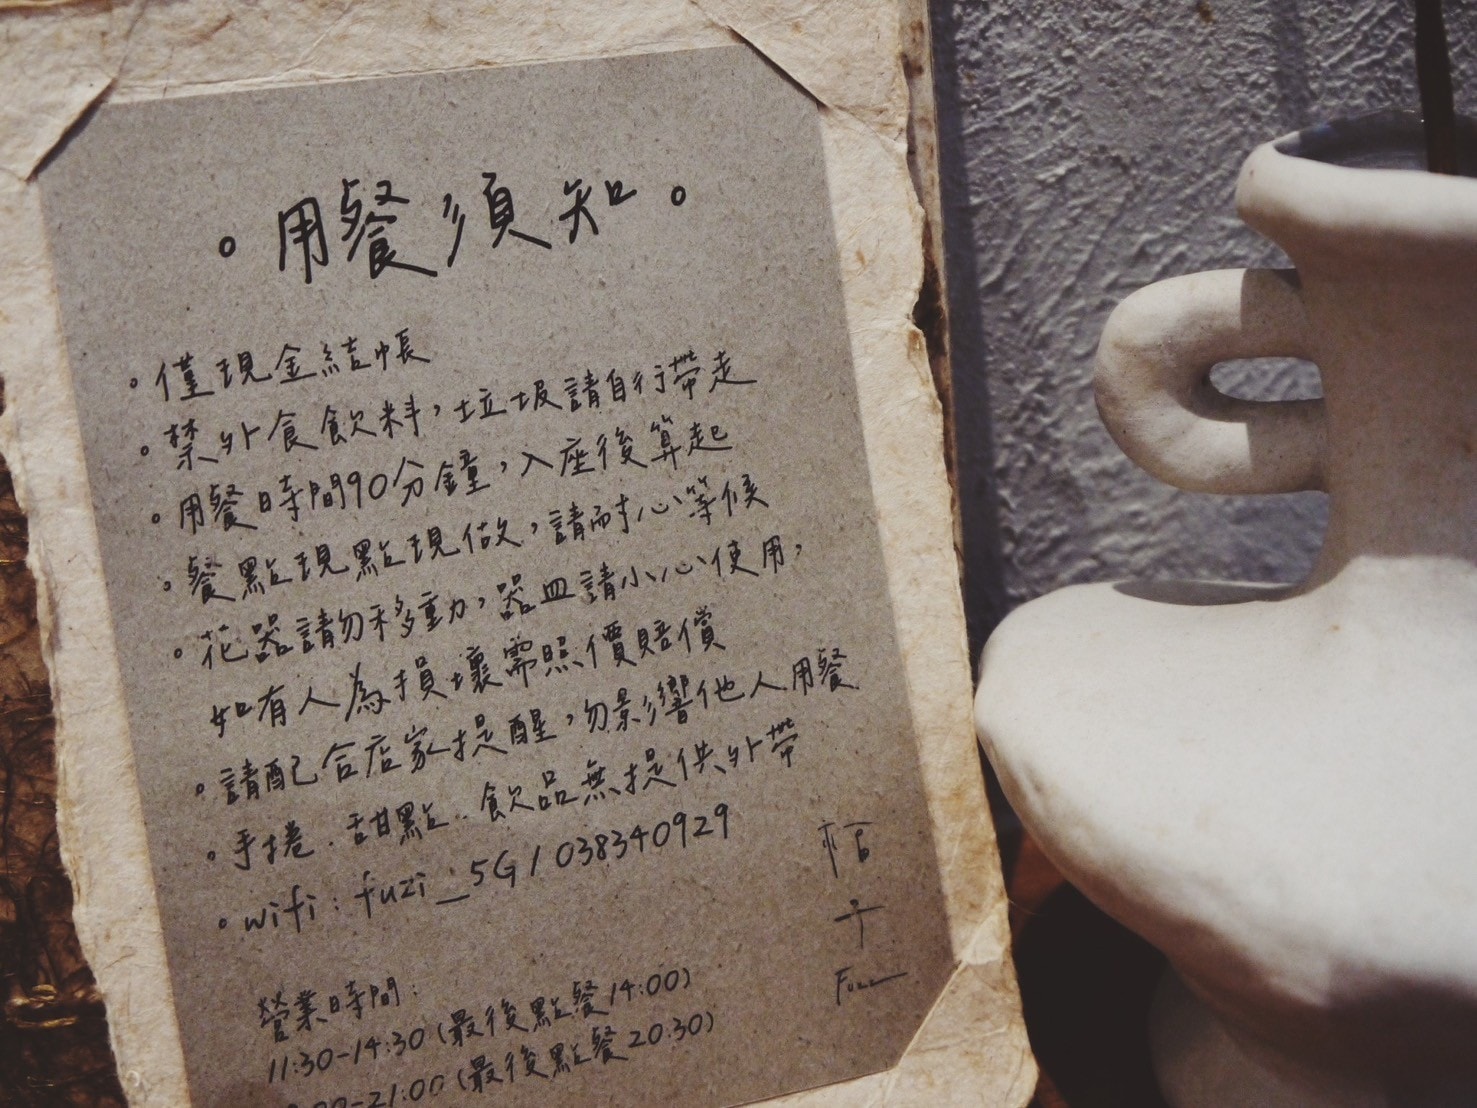 。用餐須知。
。僅現金結帳
。禁外食飲料，垃圾請自行帶走
。用餐時間90分鐘，入座後算起
。餐點現點現做，請耐心等候
。花器請勿移動，器皿請小心使用，
如有人為損壞需照價賠償
。請配合店家提醒，勿影響他人用餐
。手捲．甜點．飲品無提供外帶
。wifi：fuzi_5G / 038340929
營業時間：
11:30-14:30 (最後點餐14:00)
00-21:00 (最後點餐20:30)